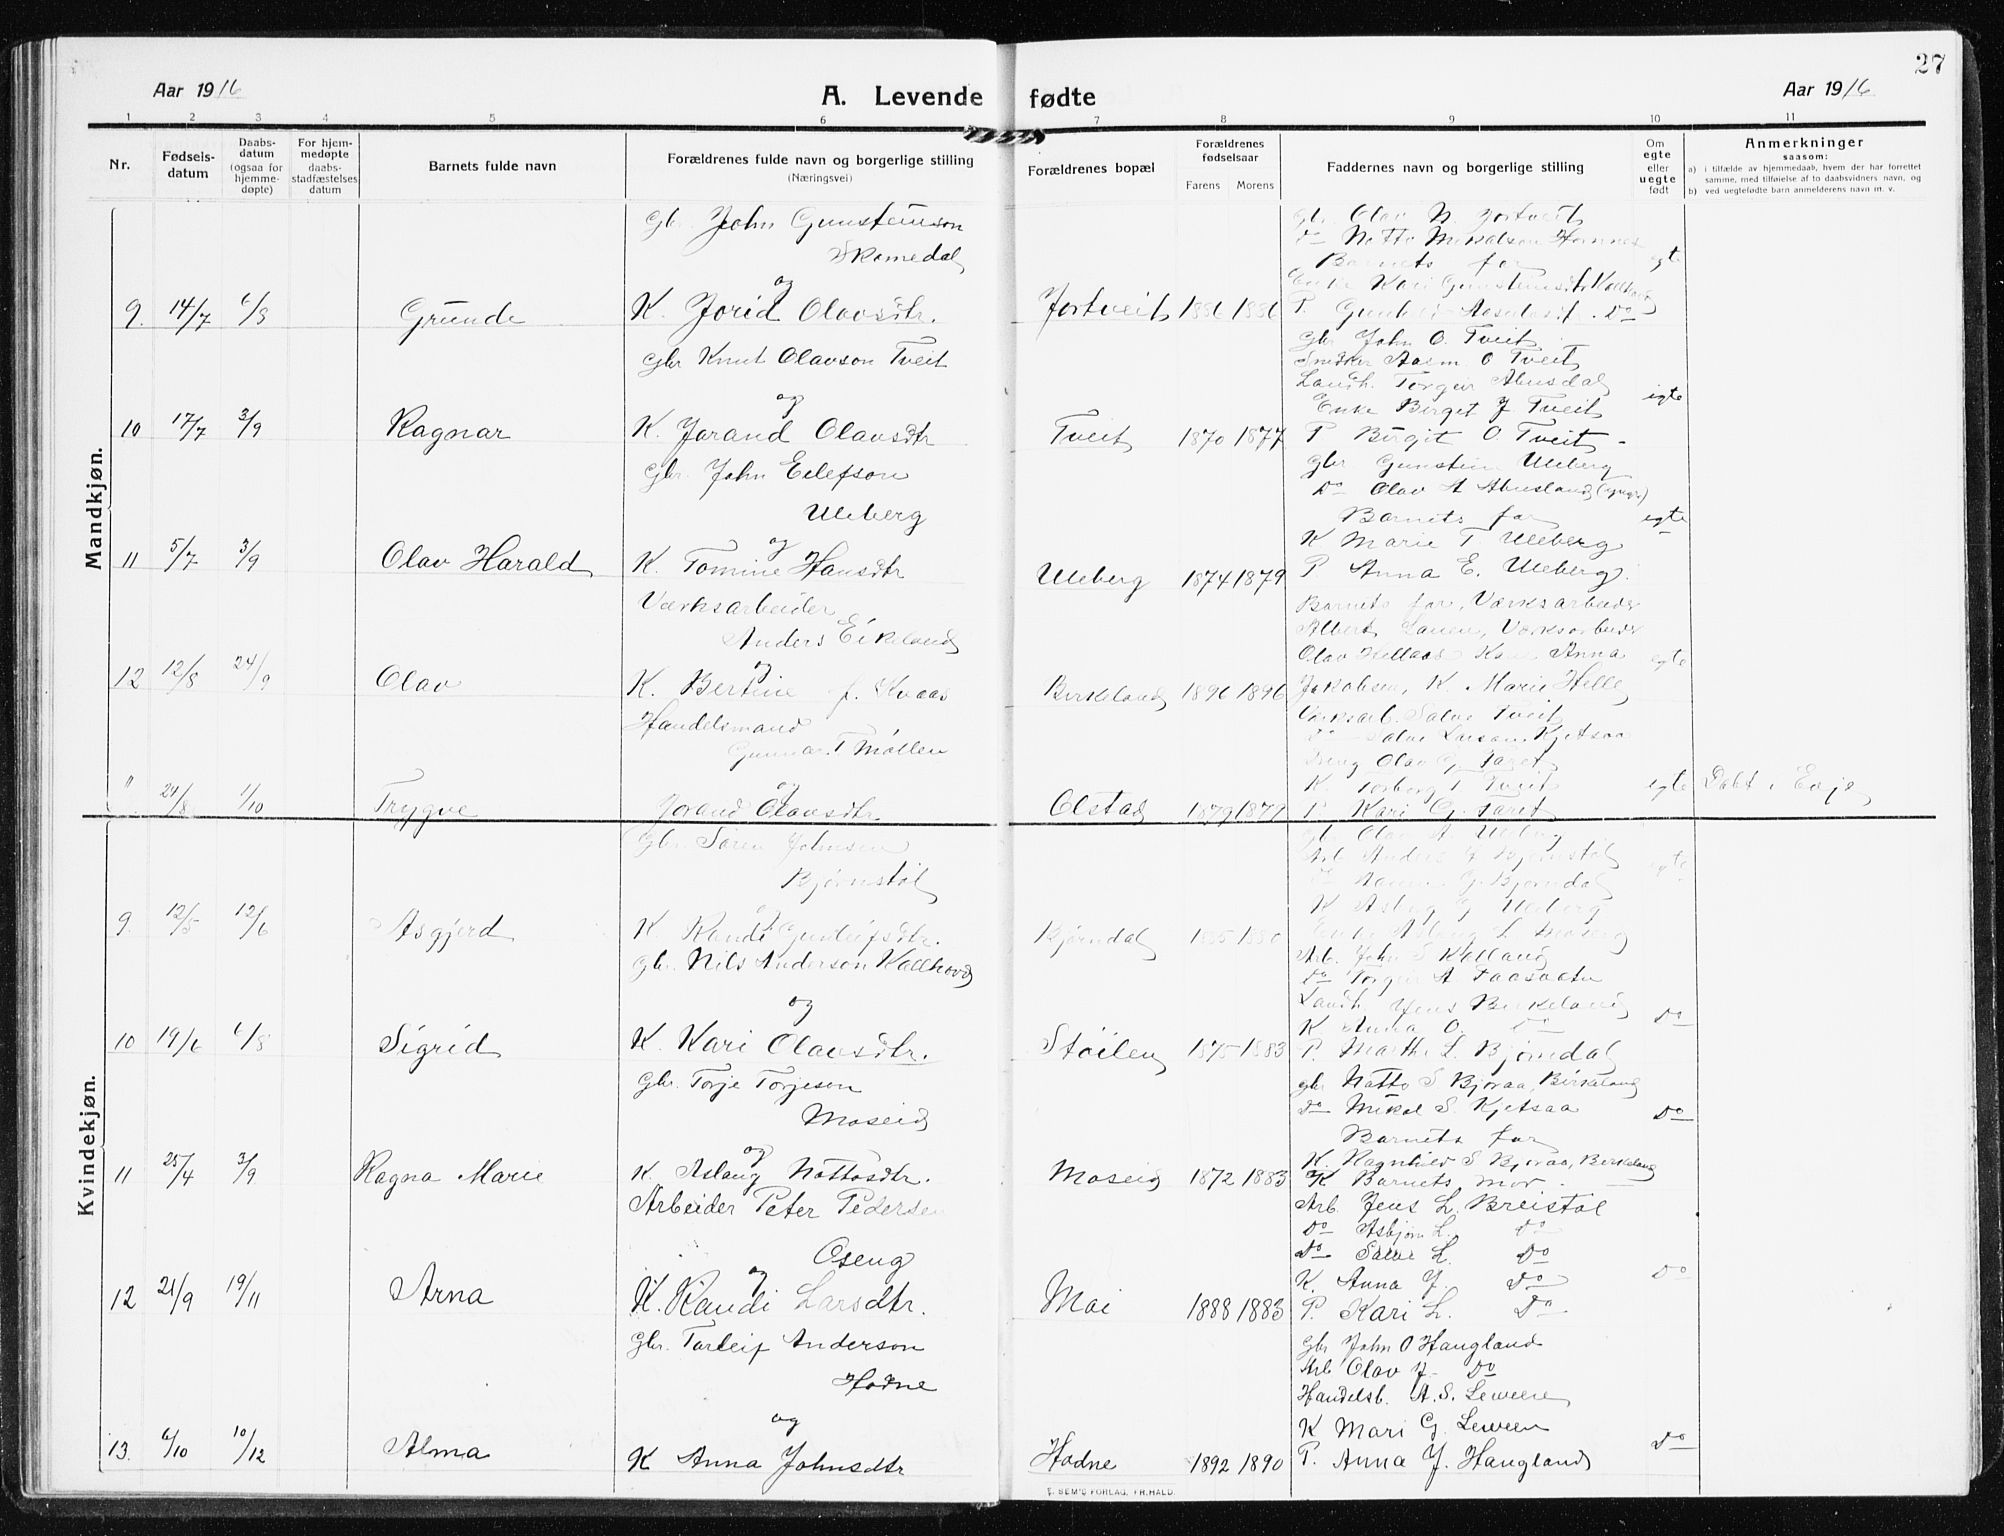 27
Aar 1916
A. Levende fødte
Aar 1916
1 2 3 4 5 6 7 8 9 10 11
Nr.
Fødsels-
datum
Daabs-
datum
(ogsaa for
hjemme-
døpte)
For hjem-
medøpte
daabs-
stadfæstelses
datum
Barnets fulde navn
Forældrenes fulde navn og borgerlige stilling
(Næringsvei)
Forældrenes bopæl
Forældrenes
fødselsaar
Farens Morens
Faddernes navn og borgerlige stilling
Om
egte
eller
uegte
født
Anmerkninger
saasom:
a) i tilfælde av hjemmedaab, hvem der har forrettet
samme, med tilføielse af to daabsvidners navn, og
b) ved uegtefødte barn anmelderens navn m. v.
Mandkjøn.
Gbr. John Gunsteinson
Skomedal
og
9. 14/7 6/8 Grunde K. Jorid Olavsdtr. Jortveit 1886 1886
Gbr. Olav N. Jortveit
Do Notto Mikalson Hornnes
Barnets far
egte
Gbr Knut Olavson Tveit
og
10 17/7 3/9 Ragnar K. Jorand Olavsdtr Tveit 1870 1877
Gbr John O. Tveit
Snedker O Tveit
Landh. Torgeir Abusdal
Enke Birget J Tveit
P Birgit O Tveit
egte
Gbr. John Eilefson
Uleberg
og
11 5/7 3/9 Olav Harald K. Tomine Hansdtr Uleberg 1874 1879
Gbr Gunstein Uleberg
Do Olav A Abusland
Barnets far
K Marie T. Uleberg
P. Anna E. Uleberg.
egte
Værksarbeider
Anders Eikeland
og
12 12/8 24/9 Olav K. Bertine f. Kvaas Birkeland 1896 1896
Barnets far, Værksarbeider
Albert Lauen, Værksarbeider
Olav Hellaas Kone Anna
Jakobsen, K. Marie Helle
egte
Handelsmand
Gunnar T Møllen
og
" 24/8 1/10 Trygve Jorand Olavsdtr. Olstad 1879 1877
Værksarb. Salve Tveit
Do Salve Larsen Kjetsaa
Olav G.
K. Torborg T Tveit
P Kari G
egte Døbt i Evje
Kvindekjøn.
Gbr. Søren Johnsen
Bjørnstøl
og
9. 12/5 12/6 Asgjerd K Randi Gunleifsdtr. Bjørndal 1880
Gbr Olav A Uleberg
Arb Anders Bjørnstøl
Do G. Bjørndal
K Asbug G Uleberg
Enke Aslaug L Moseid
egte
Gbr. Nils Anderson Kallhovd
og
10 19/6 6/8 Sigrid K. Kari Olavsdtr. Støilen 1875 1883
Arb. John S Kolland
Do Torgeir A
Landh Jens Birkeland
K Anna O. Do
P. Marthe L. Bjørndal
Do
Gbr. Torje Torjesen
Moseid
og
11 25/4 3/9 Ragna Marie K. Aslaug Nottosdtr. Moseid 1872 1883
Gbr Notto S Bjoraa, Birkeland
Do Mikal S. Kjetsaa
Barnets far
K. Ragnhild S Bjoraa, Birkeland
K Barnets mor.
Do
Arbeider Peter Pedersen
Oseng
og
12 21/9 19/11 Arna K. Randi Larsdtr. Moi 1888 1883
Arb. Jens L. Breistøl
Do Asbjørn L. Do
Do Salve L. Do
K. Anna J. Do
P. Kari L. Do
Do
Gbr. Torleif Anderson
Hodne
og
13. 6/10 10/12 Alma K Anna Johnsdtr Hodne 1892 1890
Gbr John O Haugland
Arb Olav J. Do
Handelsb. A. S. Leween
K Mari G. Leween
P. Anna J. Haugland
Do
E. SEM'S FORLAG, FR.HALD.